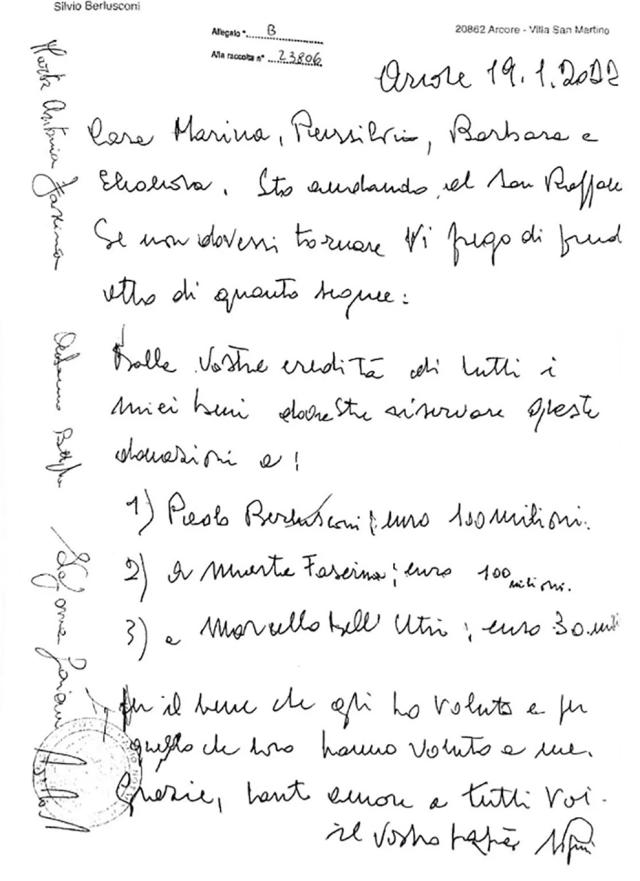 Silvio Berlusconi
20862 Arcore - Villa San Martino
Allegato "B
Alla raccolta n° 23806
Arcore 19.1.2022
Cara Marina, Piersilvio, Barbara e
Eleonora, Sto andando al San Raffaele
Se non dovessi tornare Vi prego di prend
atto di quanto segue:
Dalla vostra eredità di tutti i
miei beni dovreste riservare queste
donazioni a:
1) Paolo Berlusconi; euro 100 milioni.
2) a Marta Fascina; euro 100 milioni.
3) a Marcello Dell'Utri; euro 30
Per il bene che gli ho voluto e per
quello che loro hanno voluto a me.
Grazie, tanto amore a tutti Voi.
il vostro papà
Marta Antonia Fascina